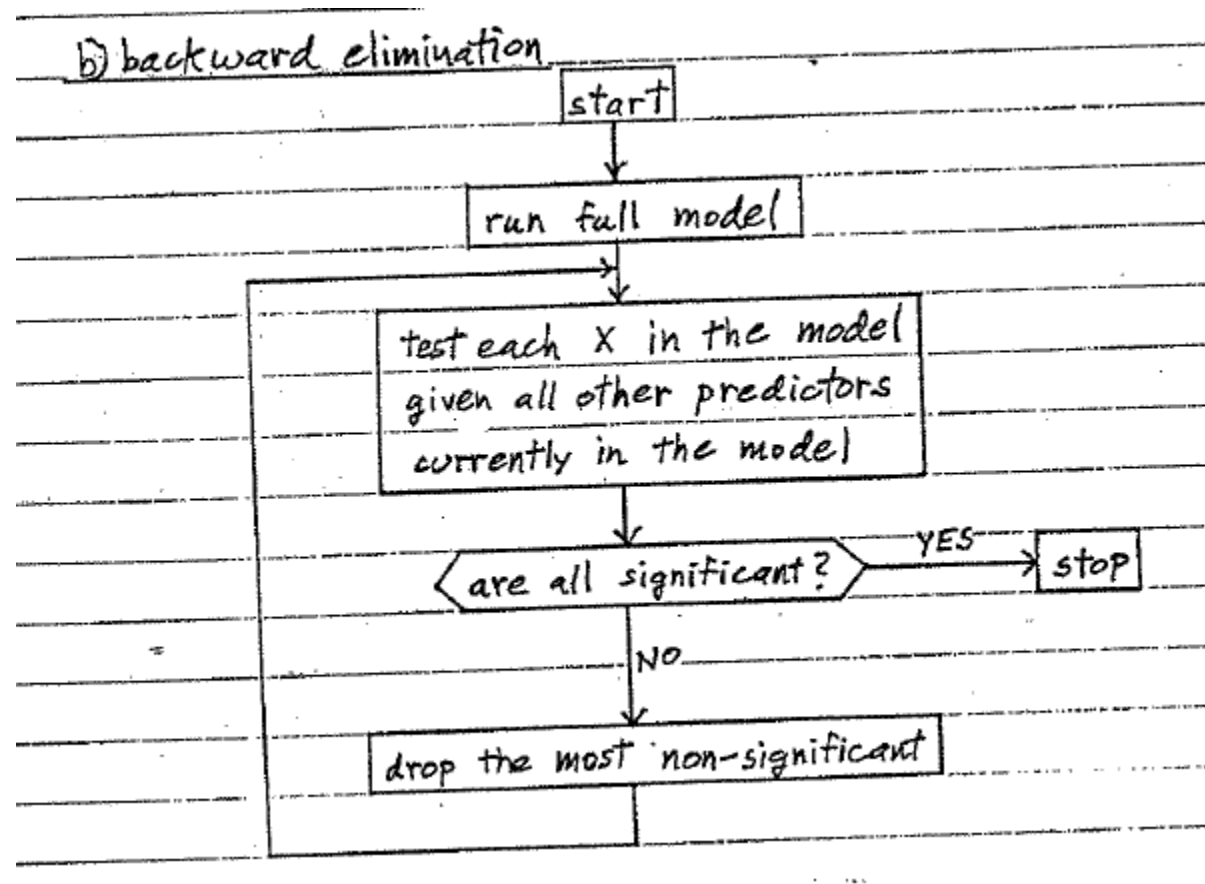 b) backward elimination
start
run full model
test each X in the model
given all other predictors
currently in the model
are all significant?
YES
stop
NO
drop the most non-significant